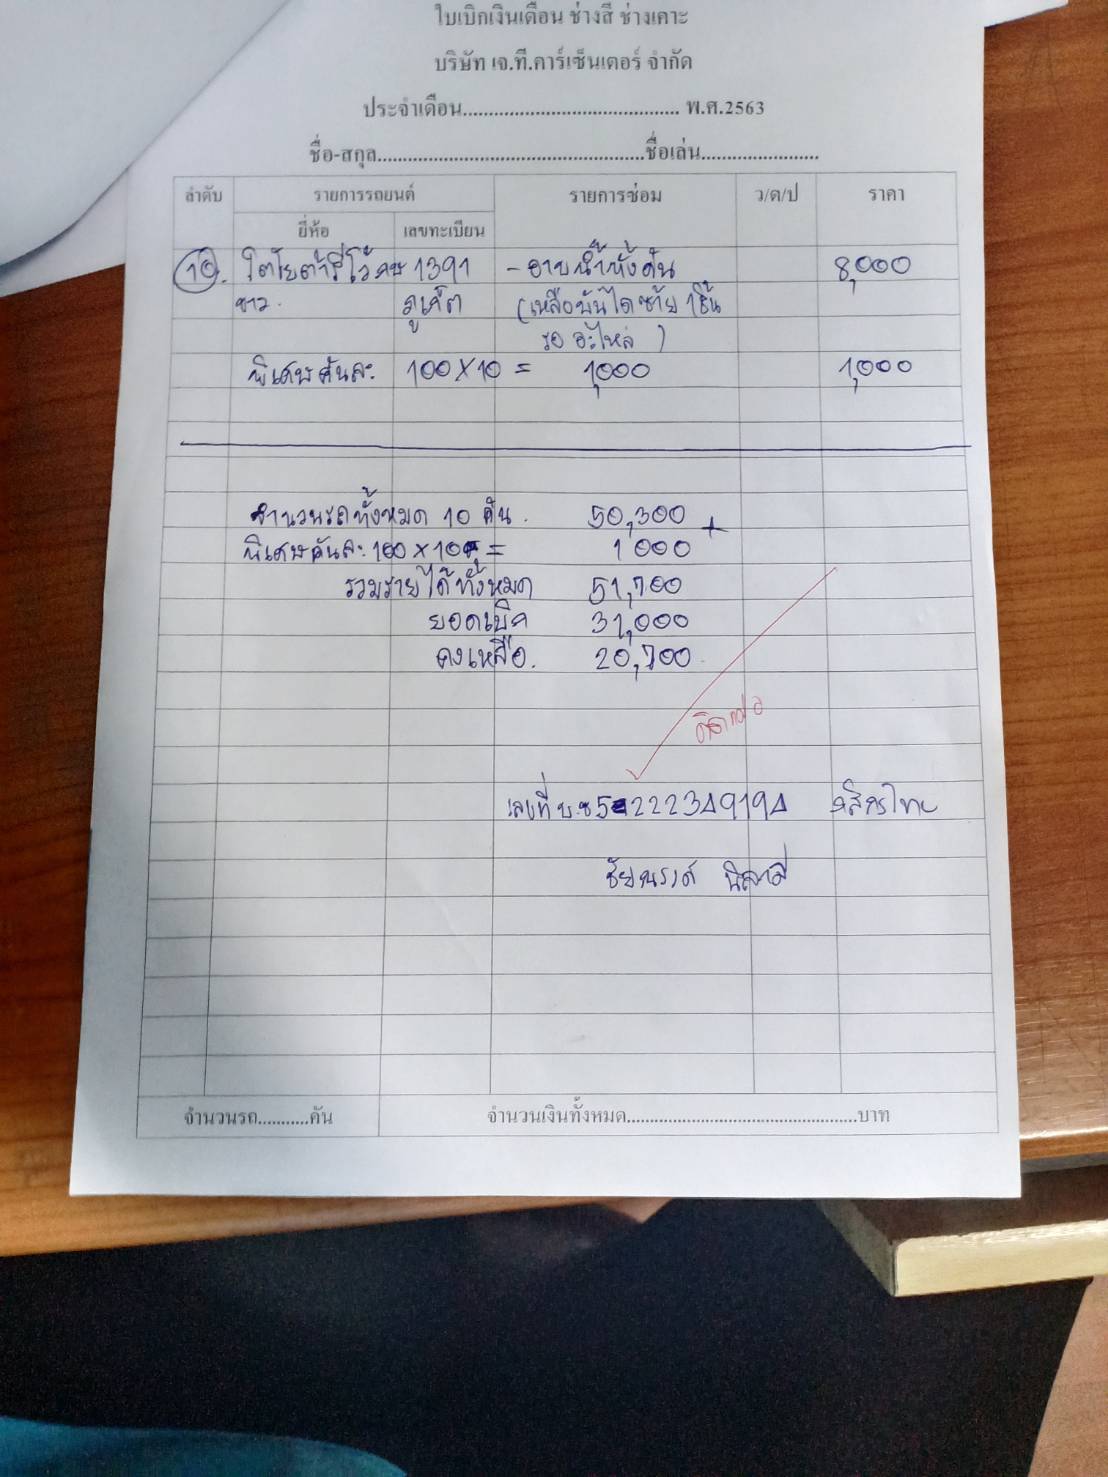 ใบเบิกเงินเดือน ช่างสี ช่างเคาะ
บริษัท เจ.ที.คาร์เซ็นเตอร์ จำกัด
ประจำเดือน.......................................... พ.ศ.2563
ชื่อ-สกุล....................................................ชื่อเล่น.......................
ลำดับ รายการรถยนต์ รายการซ่อม ว/ด/ป ราคา
ยี่ห้อ เลขทะเบียน
10. โตโยต้ารีโว้ 1391 - อาบน้ำทั้งคัน 8,000
ขาว. ภูเก็ต (เหลือบันไดซ้าย 1ชิ้น
รออะไหล่)
พิเศษคันละ 100 X 10 = 1,000 1,000
จำนวนรถทั้งหมด 10 คัน. 50,300 +
พิเศษคันละ 100 x 10 = 1000
รวมรายได้ทั้งหมด 51,700
ยอดเบิก 31,000
คงเหลือ. 20,700
เลขที่ บ.ช 5222349194 กสิกรไทย
ชัยณรงค์
จำนวนรถ...........คัน จำนวนเงินทั้งหมด.............................................บาท